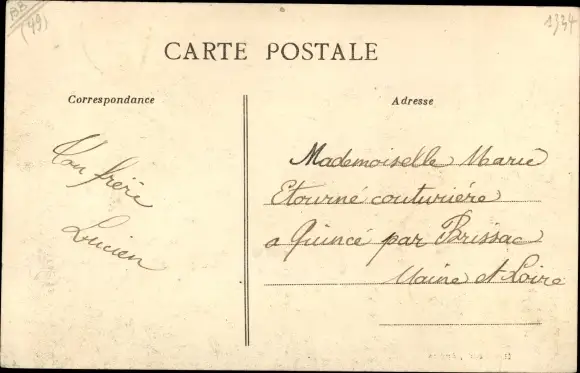 BB
(49)
1334
CARTE POSTALE
Correspondance
Adresse
Ton frère
Lucien
Mademoiselle Marie
Etourné couturiére
a Quincé par Brissac
Maine et Loire